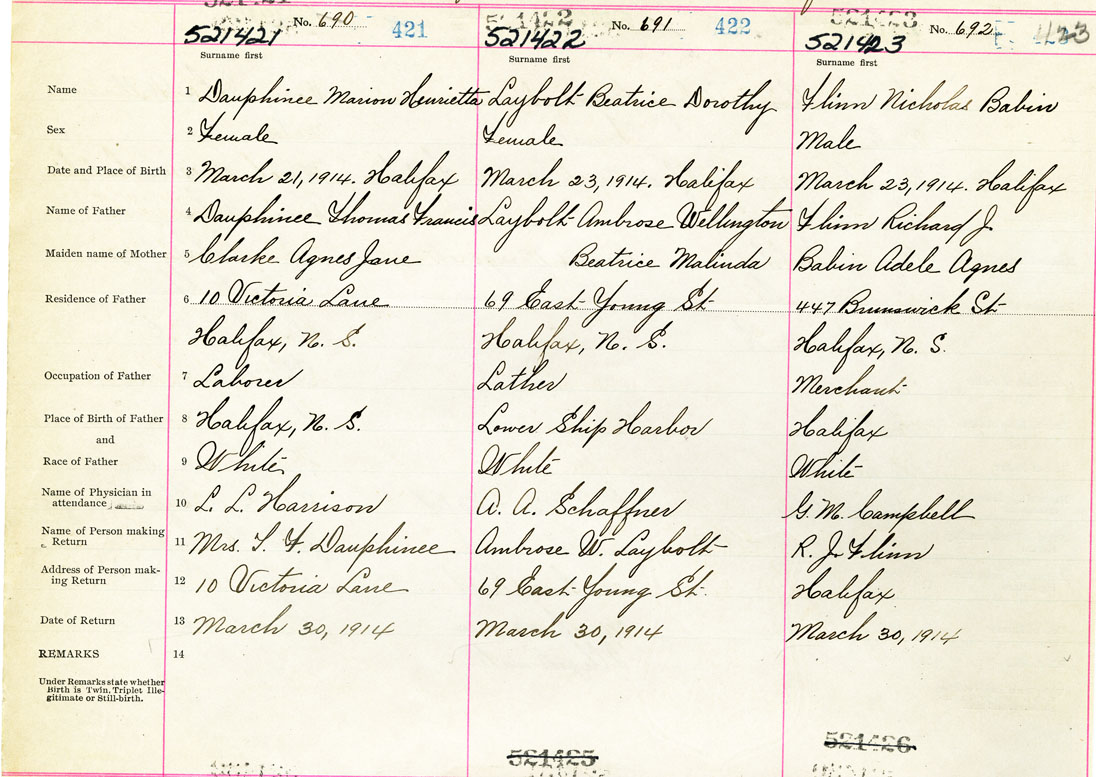 No. 690 421 521422 No. 691 422 521423 No. 692 423
521421 521422 521423
Surname first Surname first Surname first
Name 1 Dauphinee Marion Henrietta Laybolt Beatrice Dorothy Flinn Nicholas Babin
Sex 2 Female Female Male
Date and Place of Birth 3 March 21, 1914. Halifax March 23, 1914. Halifax March 23, 1914. Halifax
Name of Father 4 Dauphinee Thomas Francis Laybolt Ambrose Wellington Flinn Richard J.
Maiden name of Mother 5 Clarke Agnes Jane Beatrice Malinda Babin Adele Agnes
Residence of Father 6 10 Victoria Lane 69 East Young St 447 Brunswick St
Halifax, N. S. Halifax, N. S. Halifax, N. S.
Occupation of Father 7 Laborer Lather Merchant
Place of Birth of Father 8 Halifax, N. S. Lower Ship Harbor Halifax
and
Race of Father 9 White White White
Name of Physician in
attendance 10 L. L. Harrison A. A. Schaffner G. M. Campbell
Name of Person making
Return 11 Mrs. T. F. Dauphinee Ambrose W. Laybolt R. J. Flinn
Address of Person mak-
ing Return 12 10 Victoria Lane 69 East Young St. Halifax
Date of Return 13 March 30, 1914 March 30, 1914 March 30, 1914
REMARKS 14
Under Remarks state whether
Birth is Twin, Triplet Ille-
gitimate or Still-birth.
521425 521426